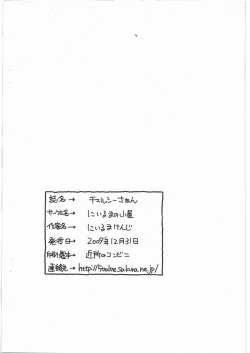 誌名→ チェルシーさぁん
サークル名→ にいるまの小屋
作家名→ にいるまけんじ
発行日→ 2009年12月31日
印刷・製本→ 近所のコンビニ
連絡先→